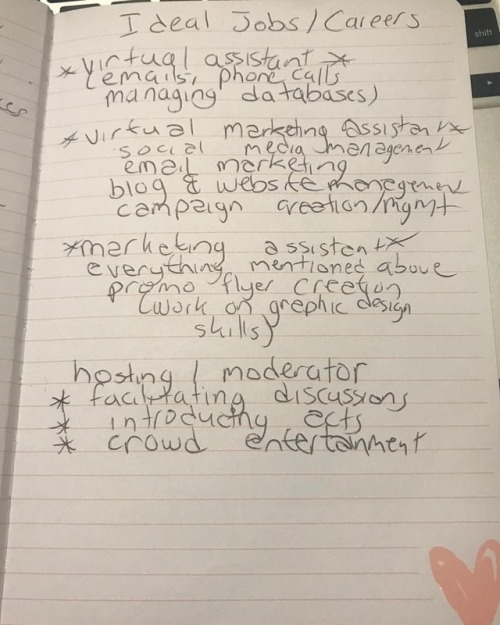 Ideal Jobs/Careers
* virtual assistant *
(emails, phone calls
managing databases)
* virtual marketing assistant *
social media management
email marketing
blog & website management
campaign creation/mgmt
* marketing assistant *
everything mentioned above
promo flyer creation
(work on graphic design
skills)
hosting / moderator
* facilitating discussions
* introducing acts
* crowd entertainment
shift